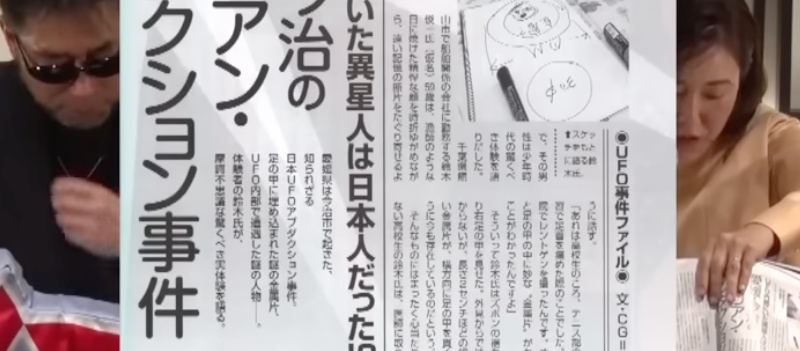 ●UFO事件ファイル● 文・CG=
⬆スケッ
チをもと
に語る鈴
木氏。
で、その男
性は少年時
代の驚くべ
き体験を語
りだした。
千葉県館
山市で船舶関係の会社に勤務する鈴木
俊一氏(仮名)50歳は、漁師のような
日に焼けた精悍な顔を時折ゆがめなが
ら、遠い記憶の断片をたぐり寄せるよ
うに話す。
「あれは高校生のころ、テニス部の
習で足首を痛めた際のことでした。
院でレントゲンを撮ったんです。す
と足の甲の中に妙な"金属片"が
ことがわかったんですよ」
そういって鈴木氏はズボンの裾を
り右足の甲を見せた。外見からでは
からないが、長さ2センチほどの細
い金属片が、横方向に足の甲を貫く
うに今も存在しているのだという。
そんなものにはまったく心当た
ない高校生の鈴木氏は、医師に取
いた異星人は日本人だった!?
治の
アン・
クション事件
愛媛県は今治市で起きた、
知られざる
日本UFOアブダクション事件。
足の中に埋め込まれた謎の金属片、
UFO内部で遭遇した謎の人物――。
体験者の鈴木氏が、
摩訶不思議な驚くべき実体験を語る。